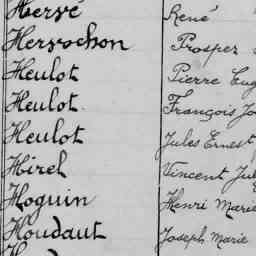 Hervé René
Hervochon Prosper
Heulot Pierre Eug
Heulot François Jo
Heulot Jules Ernest
Hirel Vincent Jul
Hoguin Henri Marie
Houdaut Joseph Marie